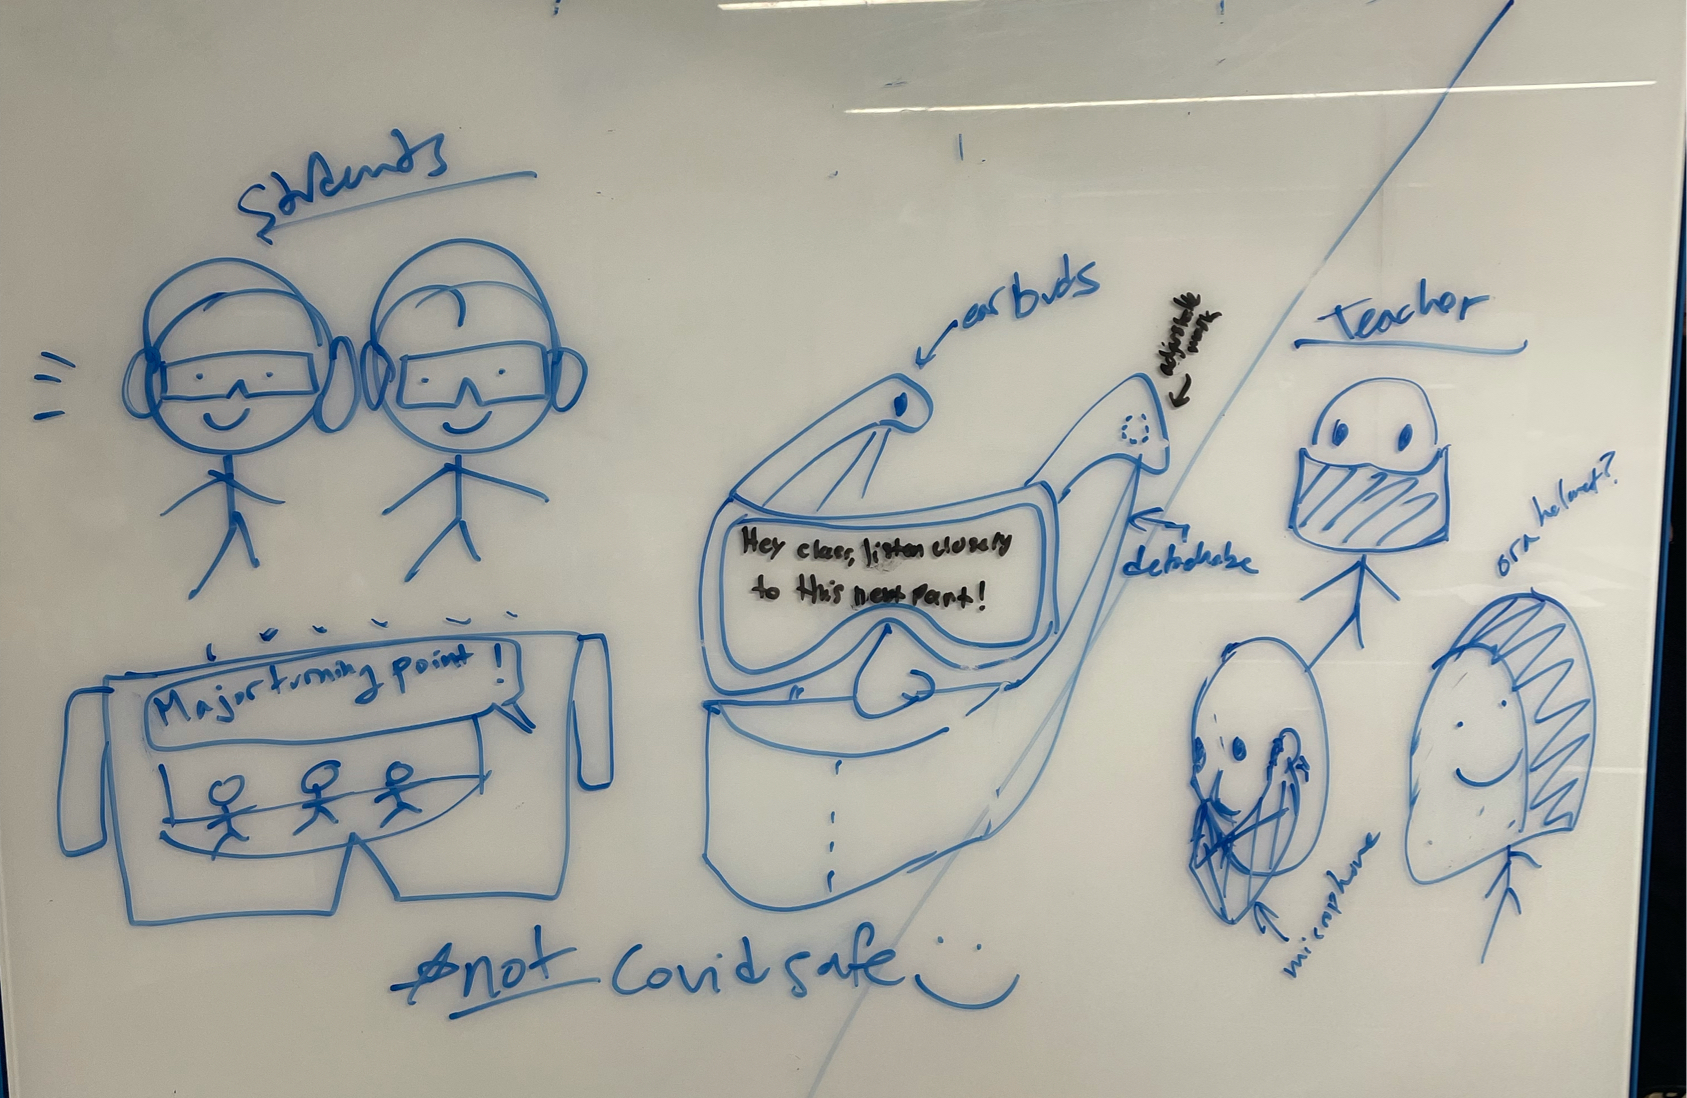 Students
Major turning point!
earbuds
adjustable
mask
Hey class, listen closely
to this next part!
detachable
*not Covid safe
Teacher
or a helmet?
microphone